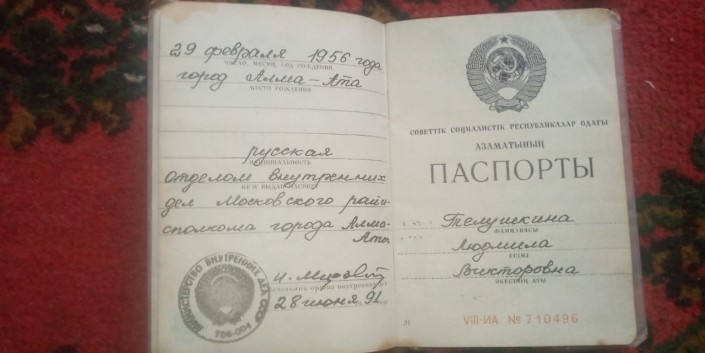 29 февраля 1956 года
ЧИСЛО, МЕСЯЦ, ГОД РОЖДЕНИЯ
город Алма-Ата
МЕСТО РОЖДЕНИЯ
русская
НАЦИОНАЛЬНОСТЬ
отделом внутренних
КЕМ ВЫДАН ПАСПОРТ
дел Московского рай-
сполкома города Алма-
Аты
МИНИСТЕРСТВО ВНУТРЕННИХ ДЕЛ СССР
706-004
28 июня 91
СОВЕТТІК СОЦИАЛИСТІК РЕСПУБЛИКАЛАР ОДАҒЫ
АЗАМАТЫНЫҢ
ПАСПОРТЫ
Телушкина
ФАМИЛИЯСЫ
Людмила
ЕСІМІ
Викторовна
ӘКЕСІНІҢ АТЫ
VIII-ИА № 710496